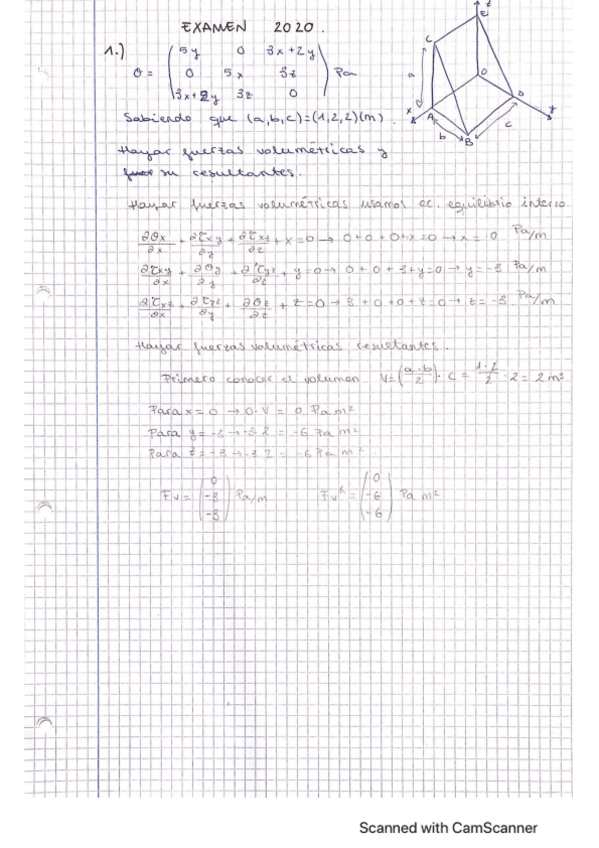 EXAMEN 2020.
1.)
σ = ( 5y 0 3x+2y
0 5x 3z
3x+2y 3z 0 ) Pa
Sabiendo que (a,b,c)=(1,2,2)(m).
z
E
C
a
O
x
A
D
y
b
c
B
Hayar fuerzas volumétricas y
su resultantes.
Hayar fuerzas volumétricas usamos ec. equilibrio interno
∂σx/∂x + ∂τxy/∂z + ∂τxz/∂z + x = 0 → 0+0+0+x=0 → x = 0 Pa/m
∂τxy/∂x + ∂σy/∂y + ∂τyz/∂z + y=0 → 0+0+3+y=0 → y=-3 Pa/m
∂τxz/∂x + ∂τyz/∂y + ∂σz/∂z + z=0 → 3+0+0+z=0 → z=-3 Pa/m
Hayar fuerzas volumétricas resultantes.
Primero conocer el volumen V=(a·b/2)·c = 1·2/2 · 2 = 2 m³
Para x=0 → 0·V = 0 Pa m²
Para y=-3 → -3·2 = -6 Pa m²
Para z=-3 → -3·2 = -6 Pa m²
Fv = ( 0 -3 -3 ) Pa/m Fv^R = ( 0 -6 -6 ) Pa m²
Scanned with CamScanner